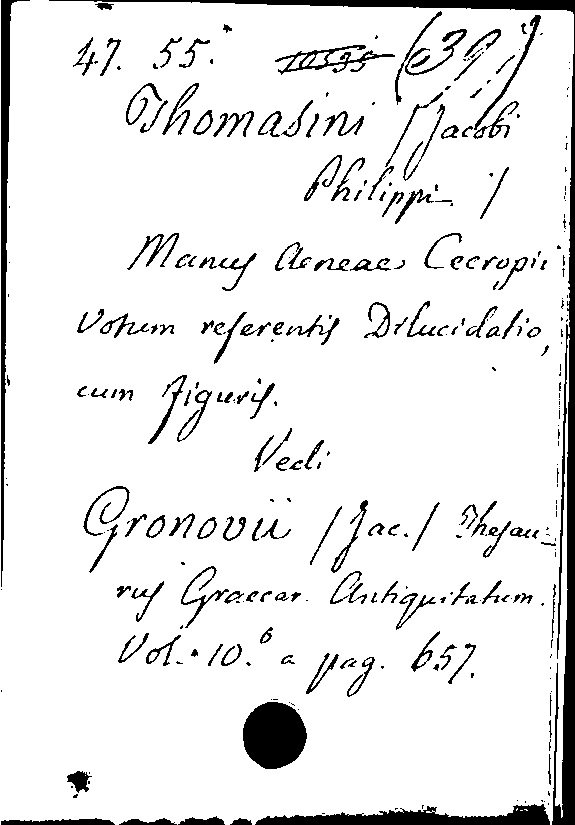 47. 55. (39)
Thomasini /Jacobi
Philippi /
Manus Aeneae Cecropii
Votum referentis Dilucidatio,
cum figuris.
Vedi
Gronovii /Jac./ Thesau-
rus Graecar. Antiquitatum.
Vol. 10.º a pag. 657.